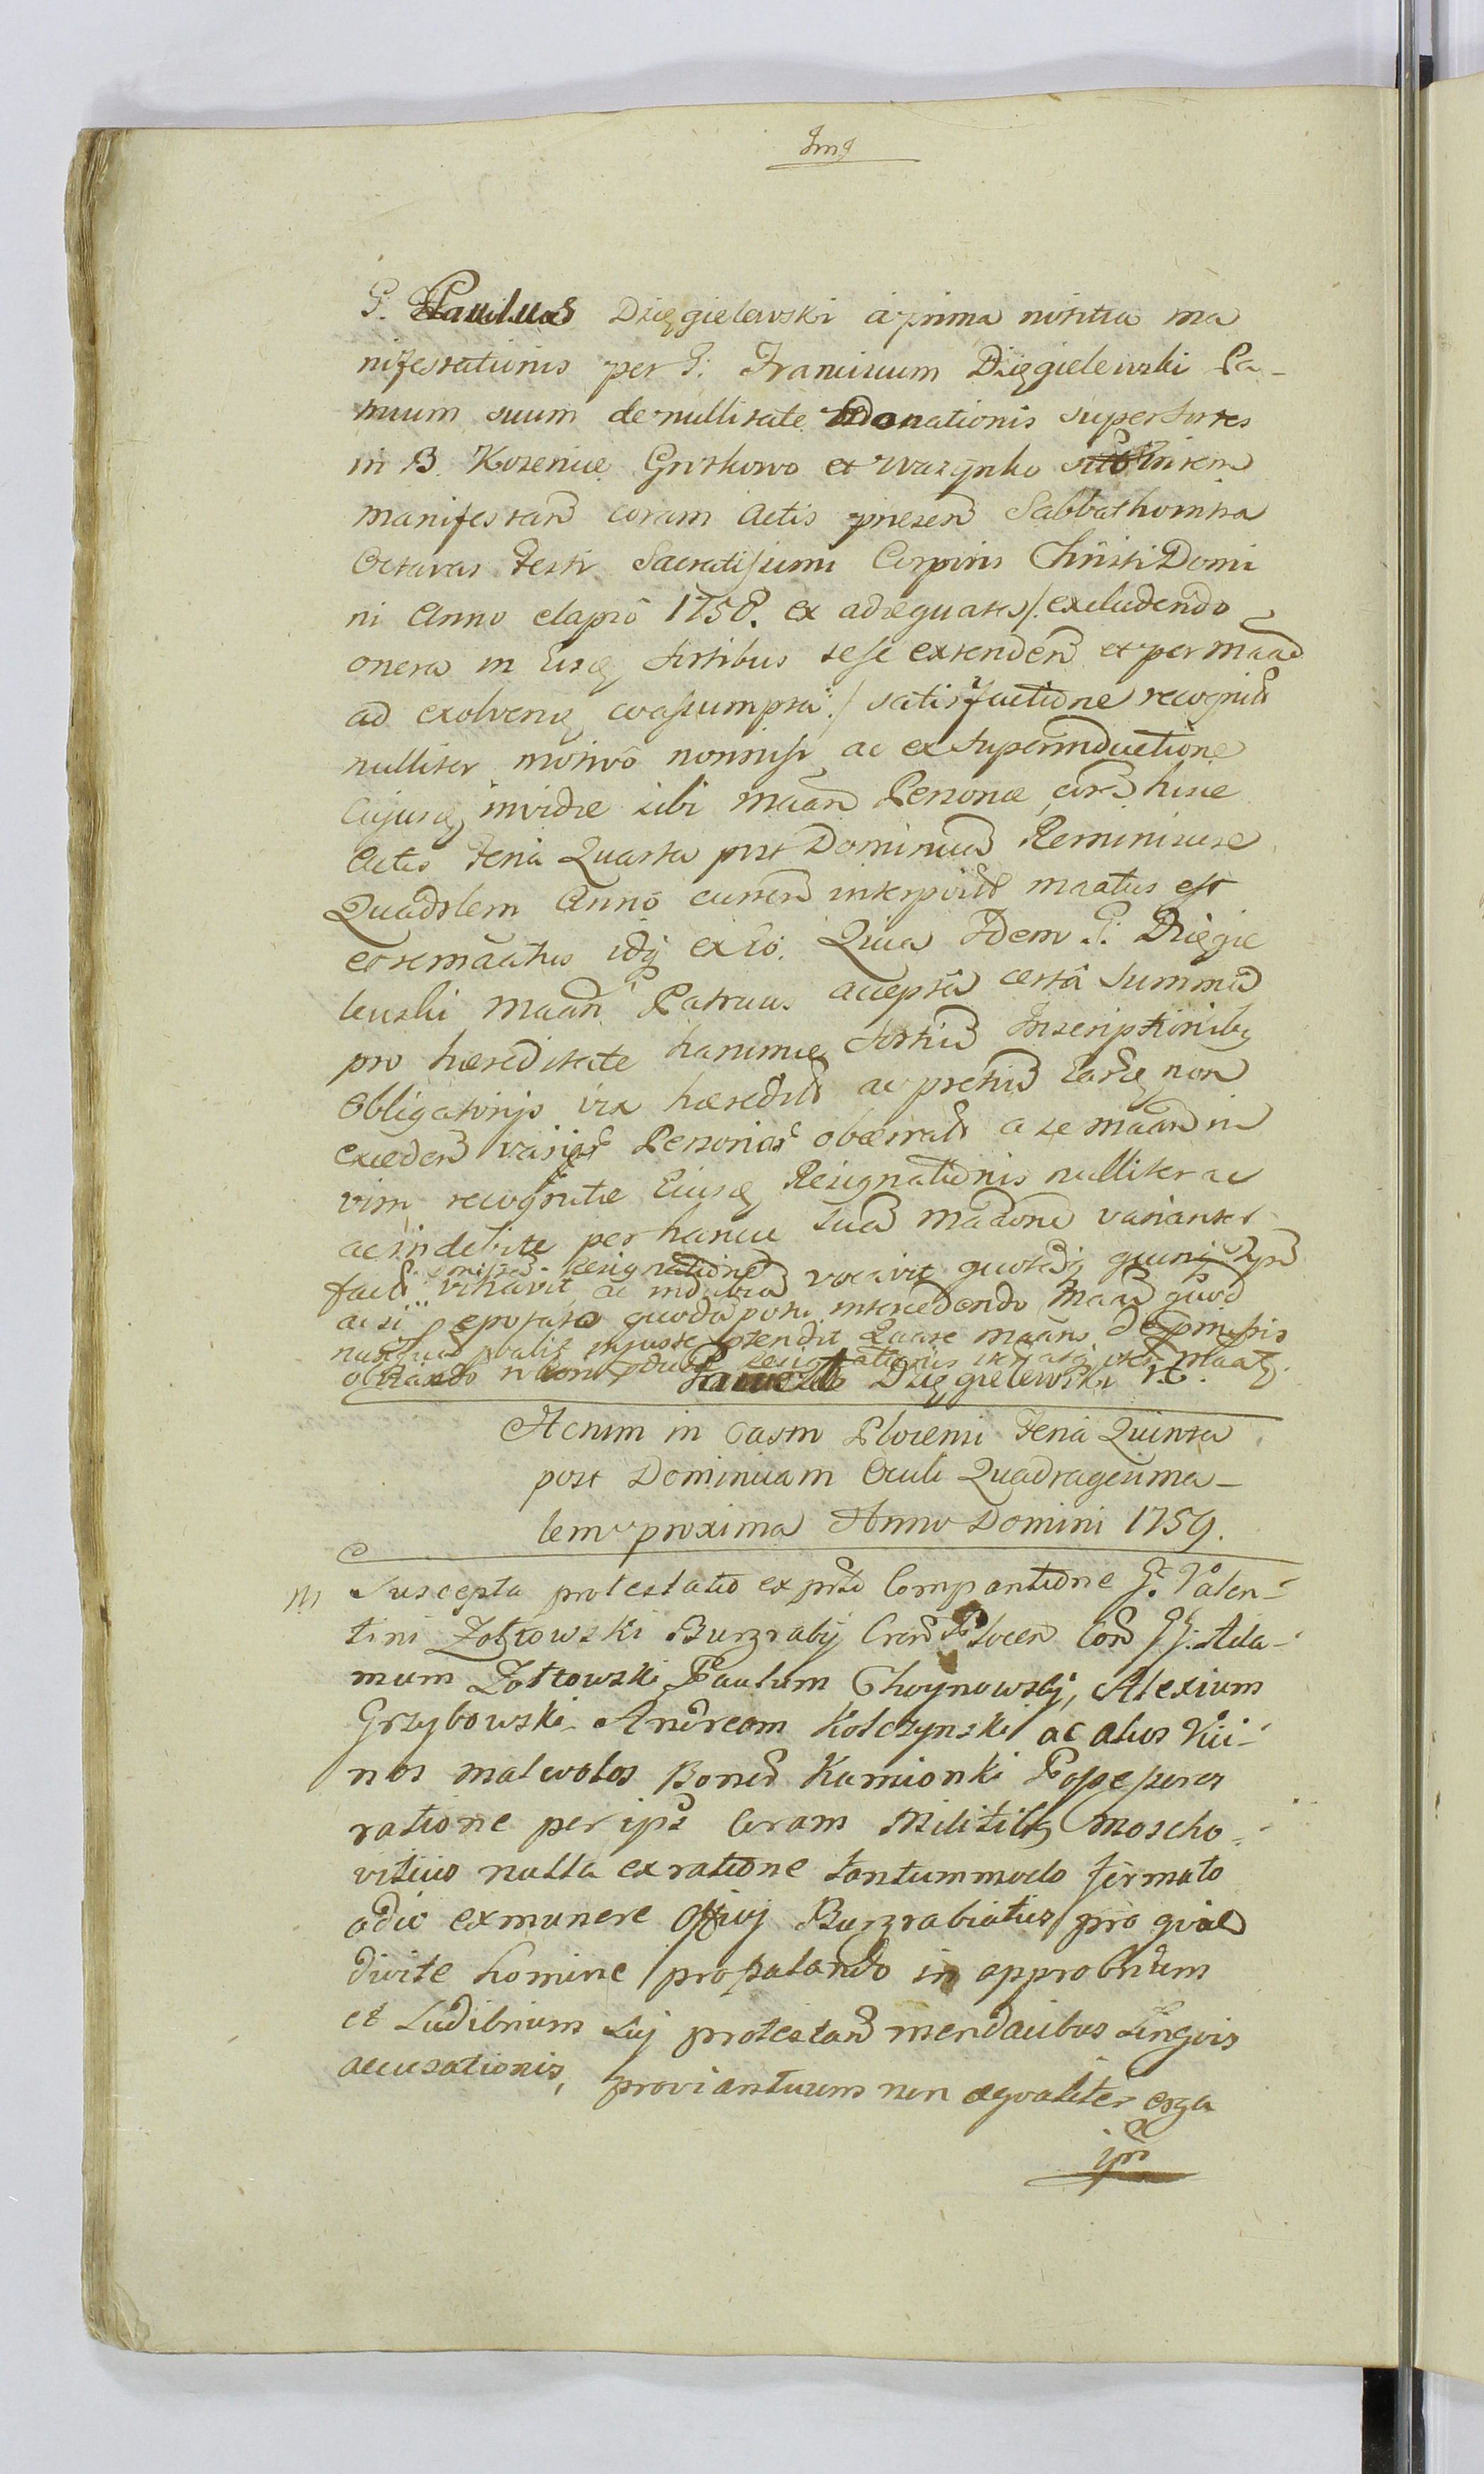 Img
G. Paulus Dzięgielewski a prima notitia ma
nifestationis per G. Franciscum Dzięgielewski Pa-
truum suum de nullitate donationis super sortes
in B. Kozenice Gostkowo et Wrazynko
manifestan coram Actis praesen Sabbatho intra
Octavas Festi Sacratissimi Corporis Christi Domi
ni Anno elapso 1758. ex adaequata /. excludendo
onera in Eisq sortibus sese extenden et per maan
ad exolvenq coassumpta ./ satisfactione recognit
nulliter motivo nonnisi ac ex superinductione
Cujusq invidae sibi maan Personae coram hisce
Actis Feria Quarta post Dominicã Reminiscere
Quadrlem Anno curren interposit maatus est
et remaatus idq ex eo. Quia Idem G. Dzięgie
lewski maan Patruus accepta certa summa
pro haereditate harumce sortiu Inscriptionibq
Obligatorijs vix haeredit ac pretiu Earq non
exceden varijs Personis obaerat a se maan in
vim recognitae Eiusq Resignationis nulliter ac
ac indebite per hance sua maaone varianter
fact vitiavit ac indebita vocavit
resignatione
ac si quoda intercedendo maan quod
injuste Quare maans De pmissis
Paweł Dzięgielewski
Actum in Castro Plocensi Feria Quinta
post Dominicam Oculi Quadragesima-
lem proxima Anno Domini 1759.
m Suscepta protestatio ex prto Comparitione G. Valen-
tini Zołtowski Burgrabij Cren Plocen Con GG. Ada-
mum Zołtowski Paulum Choynowskj, Alexium
Grzybowski Andream Kolczynski ac alios Vici-
nos malevolos Bonor Kamionki Popepores
ratione per ips Coram Militibq moscho-
viticis nulla ex ratione tantummodo firmato
odio ex munere Officij Burgrabiatus pro qval
divite homine propalando in opprobrium
et Ludibrium suj protestan mendacibus Lingvis
accusationis, proviantuum non aeqvaliter erga
ips